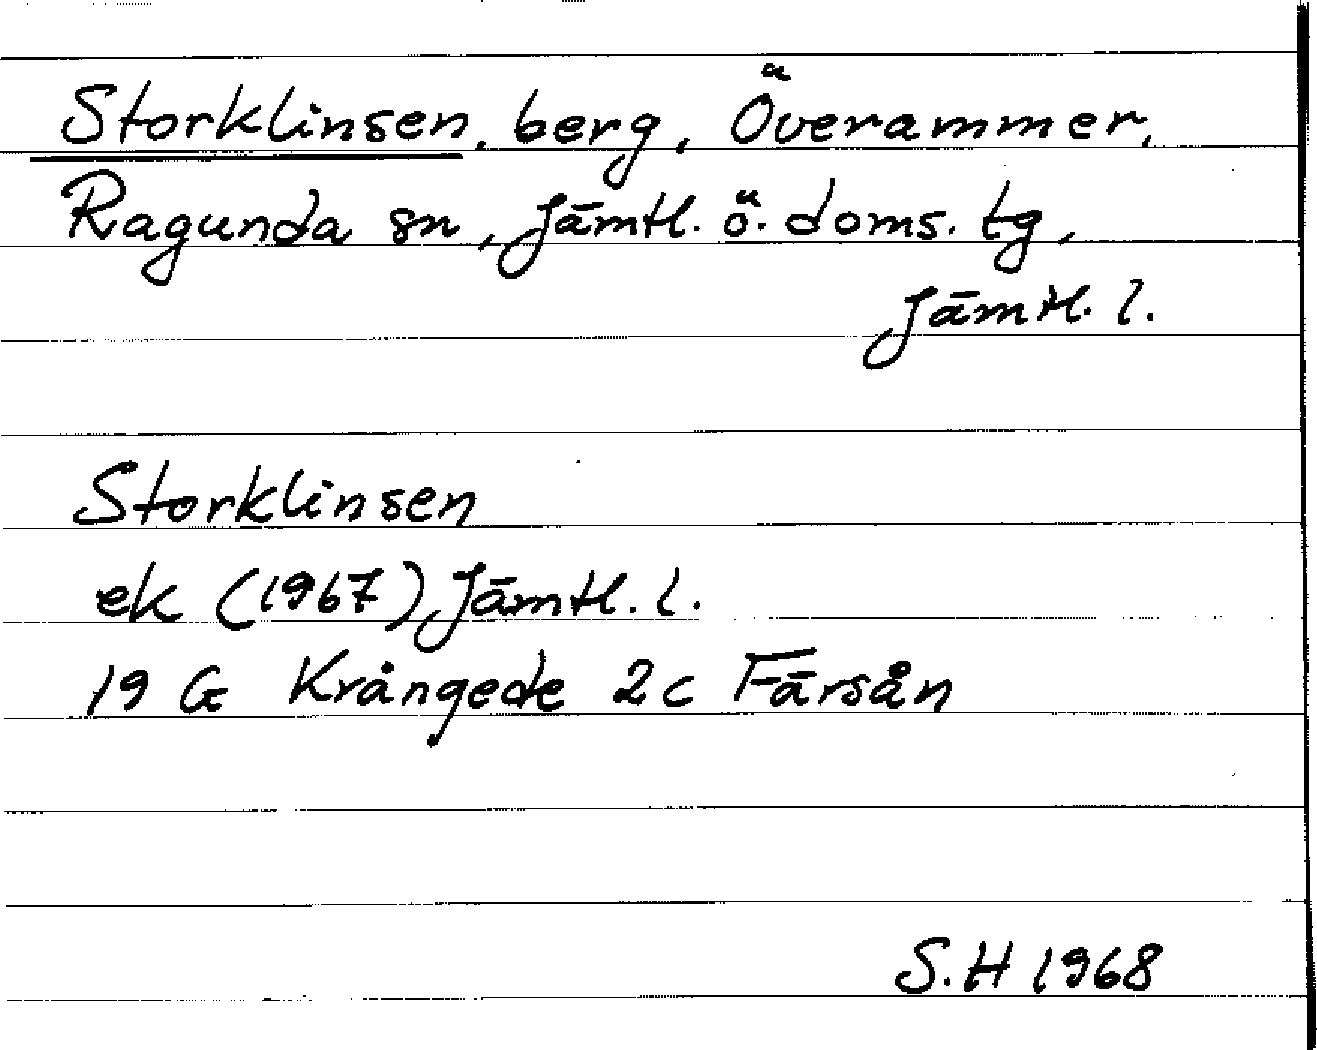 Storklinsen, berg, Överammer,
Ragunda sn, Jämtl. ö. doms. tg,
Jämtl. l.
Storklinsen
ek (1967) Jämtl. l.
19 G Krångede 2c Färsån
S.H 1968